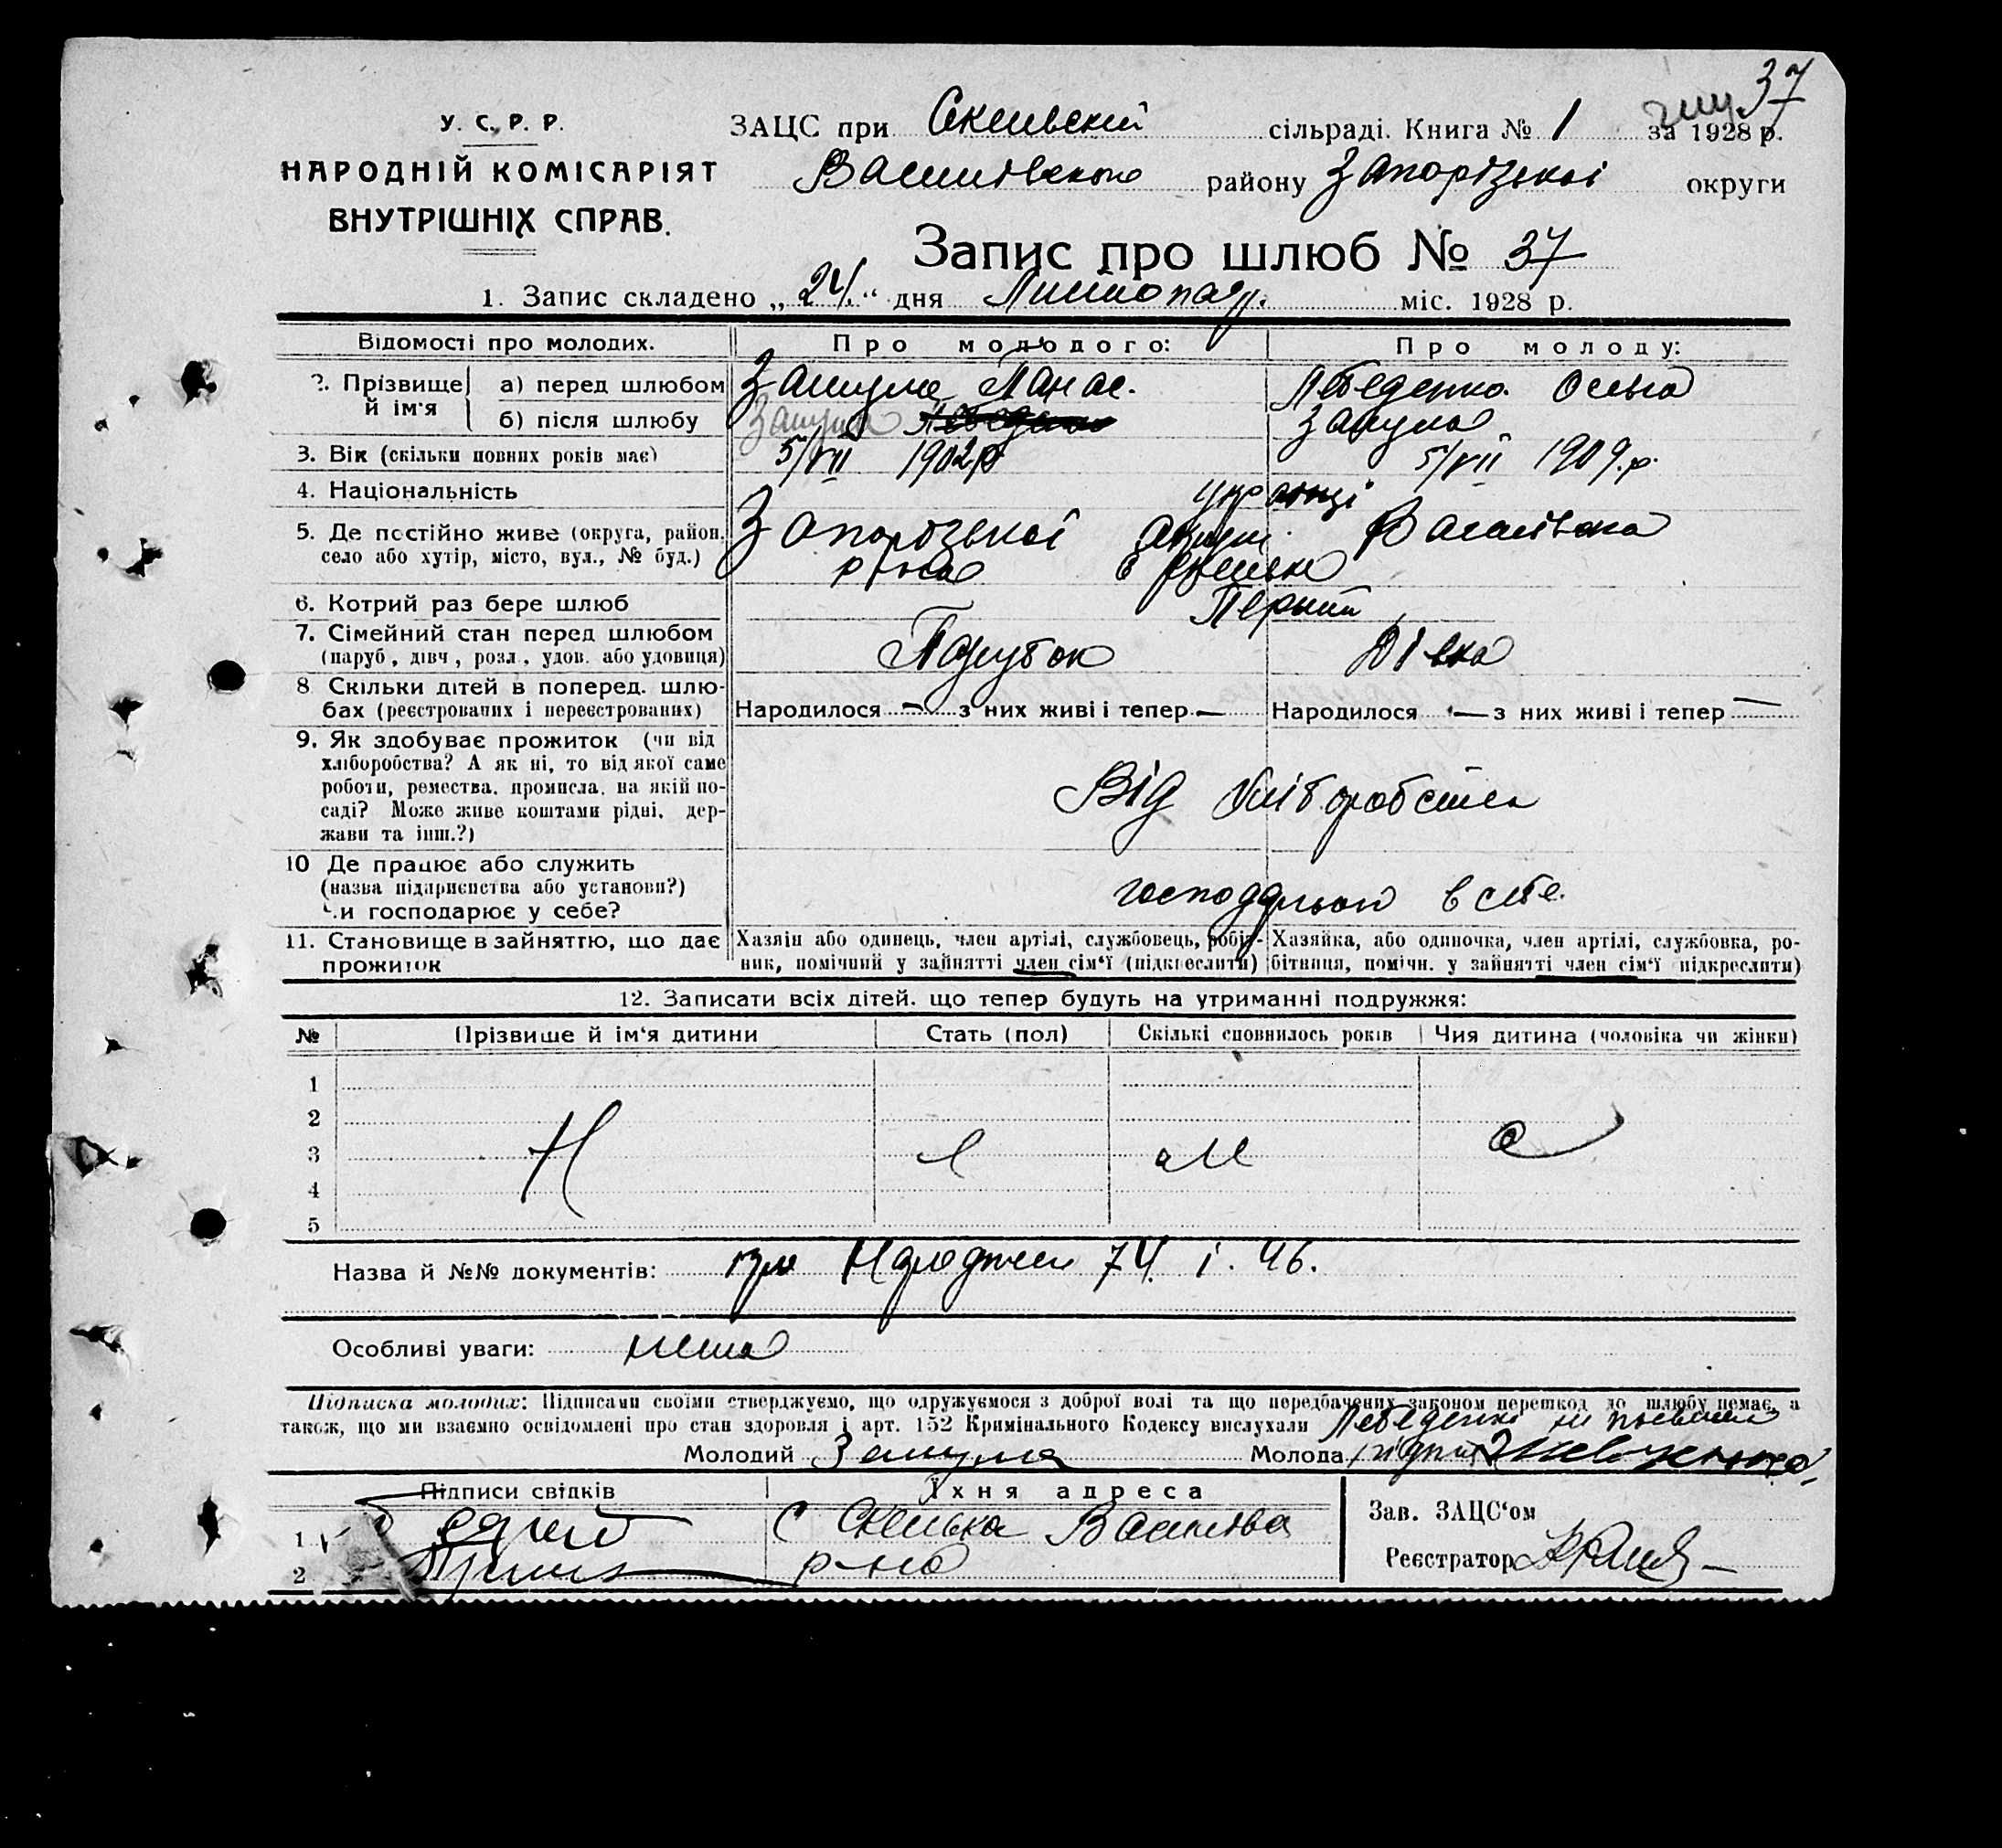 37
У. С. Р. Р.
НАРОДНІЙ КОМІСАРІЯТ
ВНУТРІШНІХ СПРАВ.
ЗАЦС при Скельвській сільраді. Книга № 1 за 1928 р.
Василівського району Запорізької округи
Запис про шлюб № 37
1. Запис складено „24“ дня Листопад. міс. 1928 р.
Відомості про молодих. Про молодого: Про молоду:
2. Прізвище й ім'я а) перед шлюбом Замула Панас. Лебеденко Ольга
б) після шлюбу Замула Замула
3. Вік (скільки повних років має) 5/VII 1902 р 5/VII 1909. р.
4. Національність українці
5. Де постійно живе (округа, район, Запорізької округи Василівська
село або хутір, місто, вул., № буд.) р-на с Скельки
6. Котрий раз бере шлюб Перший
7. Сімейний стан перед шлюбом Парубок Дівка
(паруб., дівч., розл., удов. або удовиця)
8 Скільки дітей в поперед. шлю-
бах (реєстрованих і нереєстрованих) Народилося — з них живі і тепер — Народилося — з них живі і тепер —
9. Як здобуває прожиток (чи від
хліборобства? А як ні, то від якої саме
роботи, ремества, промисла, на якій по- Від хліборобства
саді? Може живе коштами рідні, дер-
жави та інш.?)
10 Де працює або служить
(назва підприємства або установи?) в себе.
Чи господарює у себе?
11. Становище в зайняттю, що дає Хазяїн або одинець, член артілі, службовець, робіт- Хазяйка, або одиночка, член артілі, службовка, ро-
прожиток ник, помічний у зайнятті член сім'ї (підкреслити) бітниця, помічн. у зайнятті член сім'ї підкреслити)
12. Записати всіх дітей, що тепер будуть на утриманні подружжя:
№ Прізвище й ім'я дитини Стать (пол) Скількі сповнилось років Чия дитина (чоловіка чи жінки)
1
2
3 Н е ма є
4
5
Назва й №№ документів: про Народжен 74. і. 46.
Особливі уваги: нема
Підписка молодих: Підписами своїми стверджуємо, що одружуємося з доброї волі та що передбачених законом перешкод до шлюбу немає, а
також, що ми взаємно освідомлені про стан здоровля і арт. 152 Кримінального Кодексу вислухали Лебеденкі
Молодий Замула Молода
Підписи свідків Їхня адреса
1 с Скелька Василівка
2 р-на
Зав. ЗАЦС'ом
Реєстратор